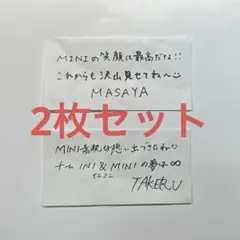 MINIの笑顔は最高だな!!
これからも沢山見せてね〜
MASAYA
2枚セット
MINI素敵な想い出できたね
チーム INI & MINI の夢は∞
TAKERU